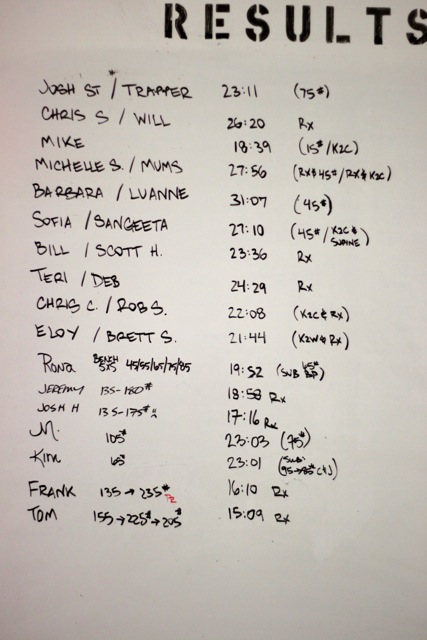 RESULTS
JOSH ST / TRAPPER 23:11 (75#)
CHRIS S / WILL 26:20 Rx
MIKE 18:39 (15#/K2C)
MICHELLE S. / MUMS 27:56 (RX&45#/RX&K2C)
BARBARA / LUANNE 31:07 (45#)
SOFIA / SANGEETA 27:10 (45#/K2C & SUPINE)
BILL / SCOTT H. 23:36 Rx
TERI / DEB 24:29 Rx
CHRIS C. / ROB S. 22:08 (K2C & Rx)
ELOY / BRETT S. 21:44 (K2W & Rx)
BENCH 5X5 45/55/65/75/85 19:52 (SUB 65# BP)
JEREMY 135-180# 18:58 Rx
JOSH H 135-175# 17:16 Rx
M. 105# 23:03 (75#)
Kim 65# 23:01 (SUB: 95→85# C+J)
FRANK 135→235# PR 16:10 Rx
TOM 155→225#→205# 15:09 Rx